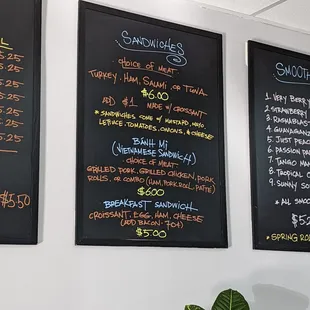 5.25
5.25
5.25
5.25
5.25
5.25
$5.50
SANDWICHES
CHOICE OF MEAT
TURKEY, HAM, SALAMI, OR TUNA
$6.00
ADD $1 MADE W/ CROISSANT
* SANDWICHES COME W/ MUSTARD, MAYO
LETTUCE, TOMATOES, ONIONS, & CHEESE
BÁNH MÌ
(VIETNAMESE SANDWICH)
- CHOICE OF MEAT -
GRILLED PORK, GRILLED CHICKEN, PORK
ROLLS, OR COMBO (HAM, PORK ROLL, PATTE)
$6.00
BREAKFAST SANDWICH
CROISSANT, EGG, HAM, CHEESE
(ADD BACON .70¢)
$5.00
SMOOTH
1. VERY BERRY
2. STRAWBERRY
5. JUST PEAC
6. PASSION PA
7. TANGO MAN
8. TROPICAL
9. SUNNY SO
* ALL SMOO
* SPRING RO